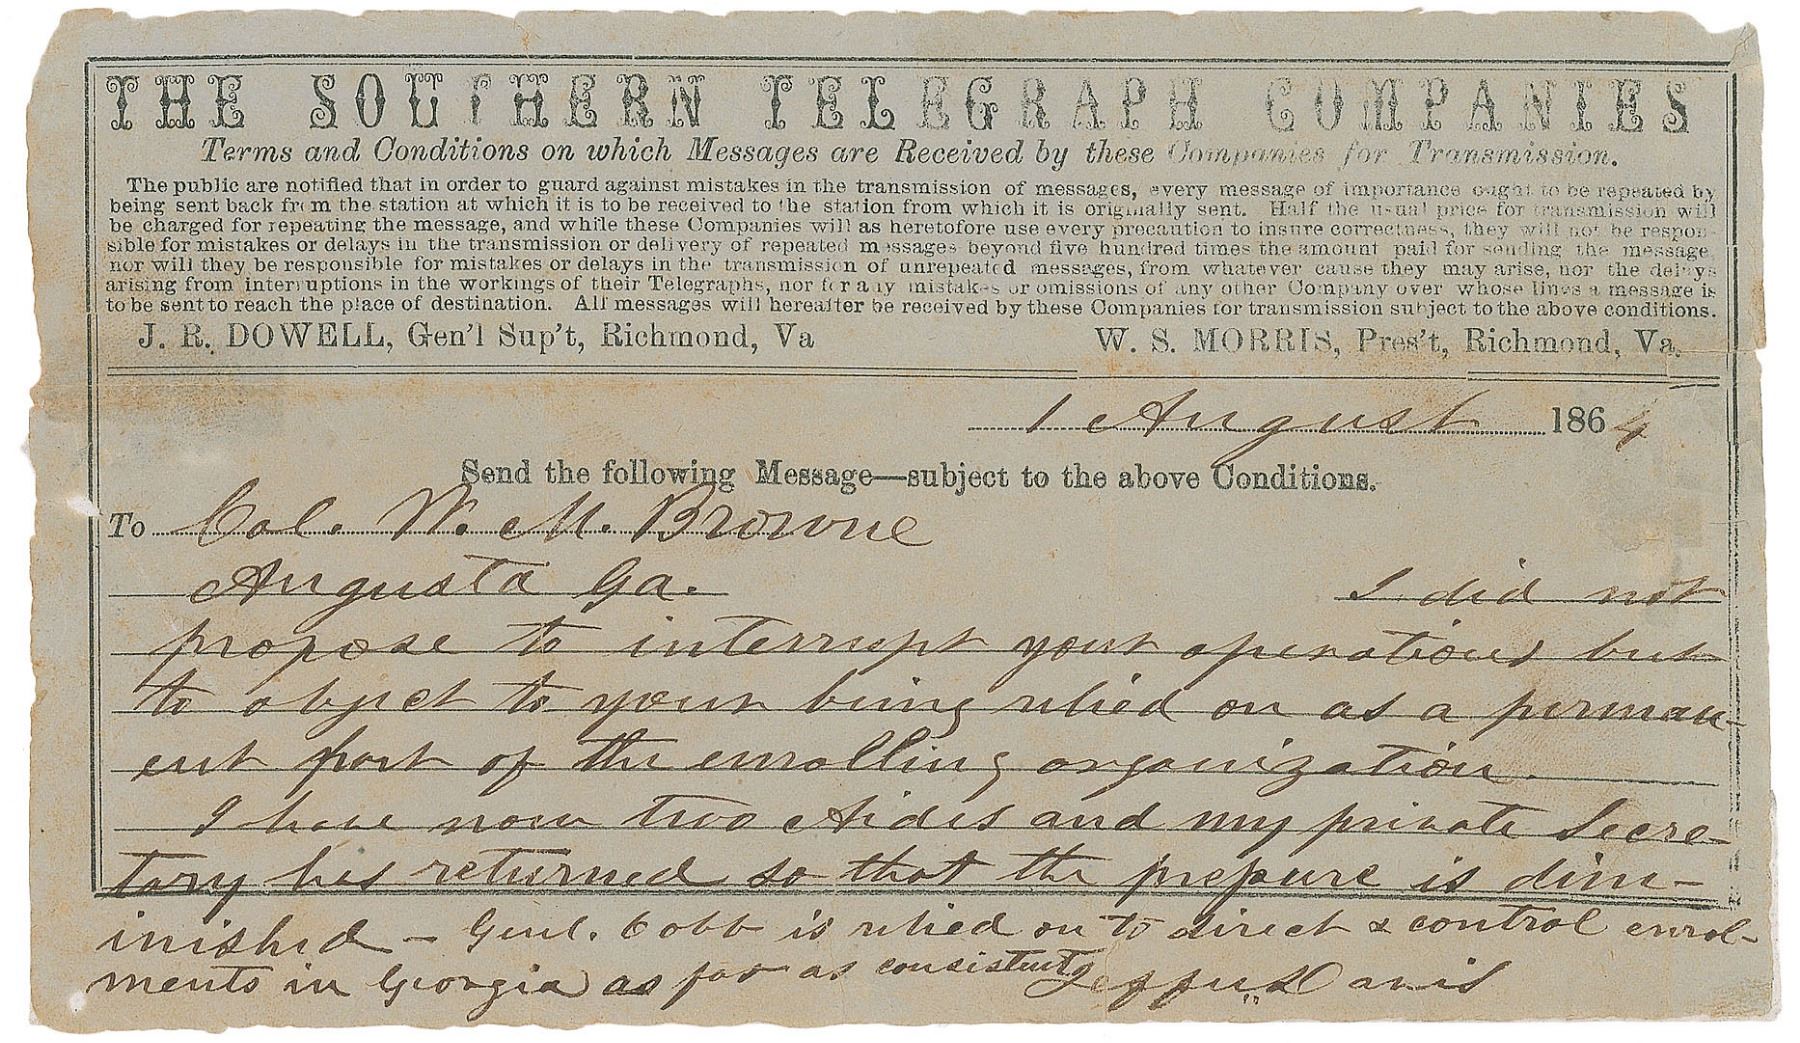 THE SOUTHERN TELEGRAPH COMPANIES
Terms and Conditions on which Messages are Received by these Companies for Transmission.
The public are notified that in order to guard against mistakes in the transmission of messages, every message of importance ought to be repeated by
being sent back from the station at which it is to be received to the station from which it is originally sent. Half the usual price for transmission will
be charged for repeating the message, and while these Companies will as heretofore use every precaution to insure correctness, they will not be respon-
sible for mistakes or delays in the transmission or delivery of repeated messages beyond five hundred times the amount paid for sending the message
nor will they be responsible for mistakes or delays in the transmission of unrepeated messages, from whatever cause they may arise, nor the delays
arising from interruptions in the workings of their Telegraphs, nor for any mistakes or omissions of any other Company over whose lines a message is
to be sent to reach the place of destination. All messages will hereafter be received by these Companies for transmission subject to the above conditions.
J. R. DOWELL, Gen'l Sup't, Richmond, Va W. S. MORRIS, Pres't, Richmond, Va.
1 August 1864
Send the following Message—subject to the above Conditions.
To Col. W. M. Browne
Augusta Ga. I did not
propose to interrupt your operations but
to object to your being relied on as a perman-
ent part of the enrolling organization.
I have now two Aides and my private Secre-
tary has returned so that the prepure is dim-
inished – Genl. Cobb is relied on to direct & control enrol-
ments in Georgia as far as consistent Jeffn Davis